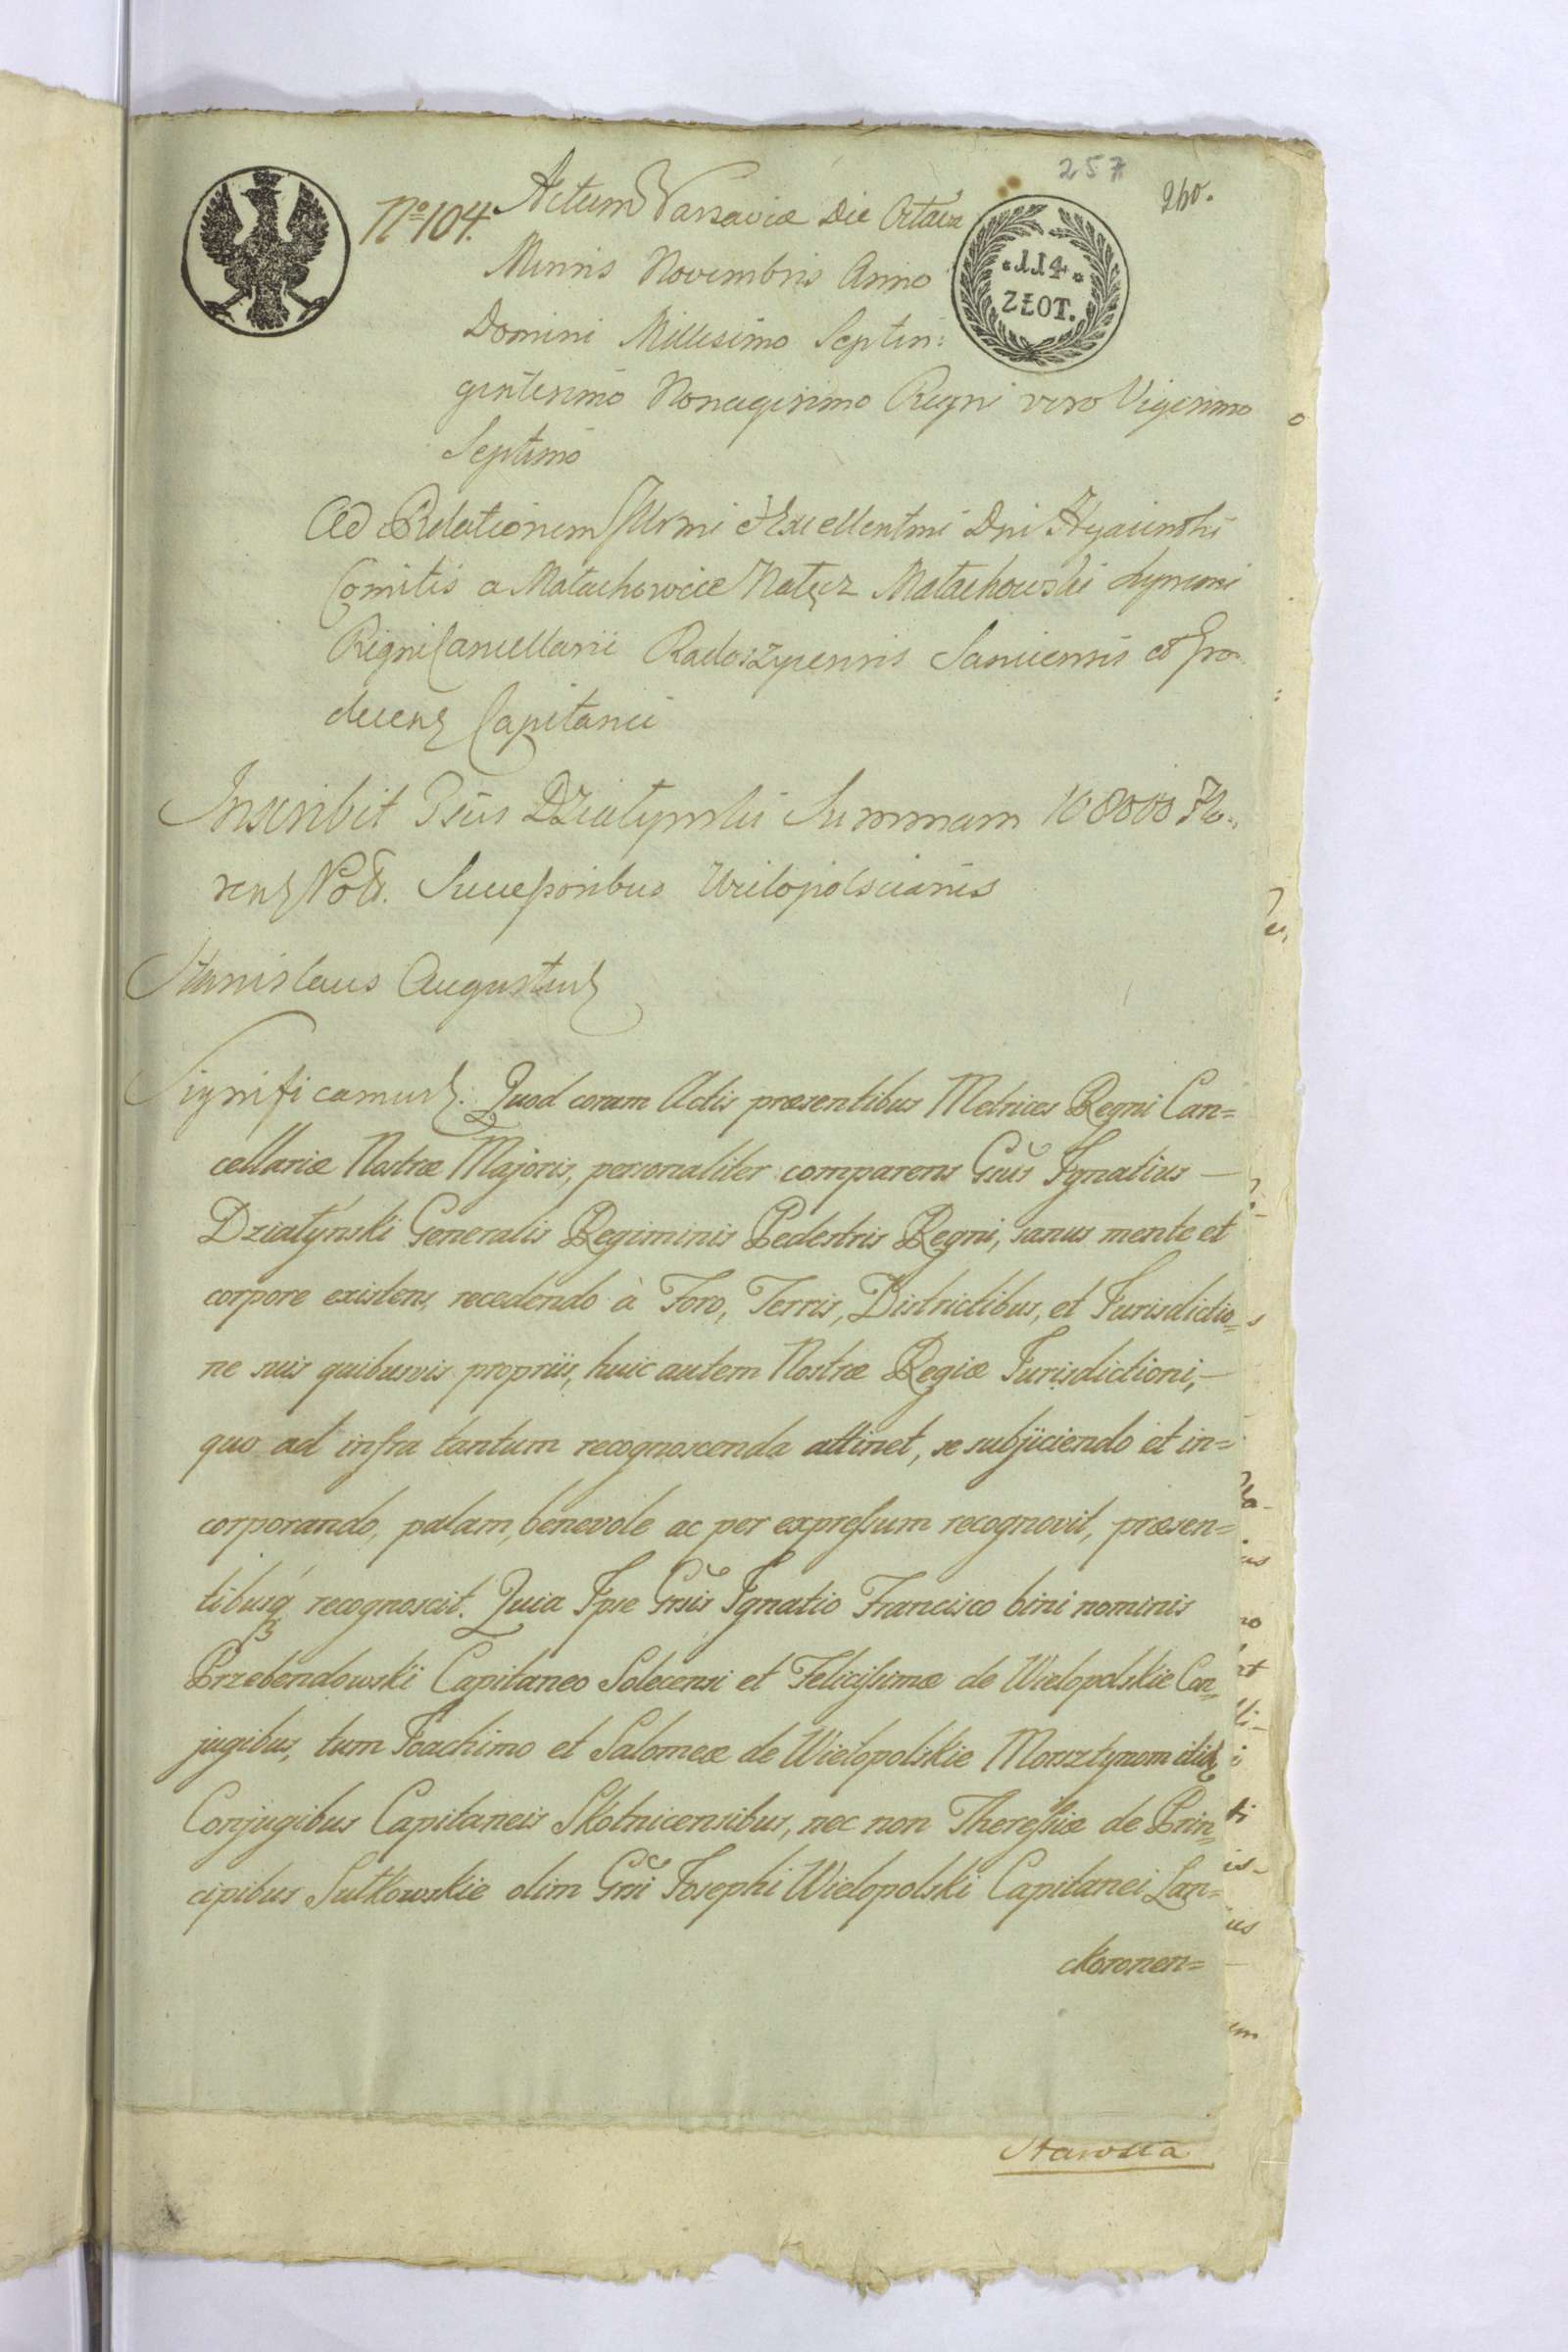 257
260.
Nº 104. Actum Varsaviæ Die Octava
Mensis Novembris Anno
.114.
ZŁOT.
Domini Millesimo Septin:
gentesimo Nonagesimo Regni vero Vigesimo
Septimo
Ad Relationem Illrmi Excellentmi Dni Hyacinthi
Comitis a Małachowice Nałęcz Małachowski Supremi
Regni Cancellarii Radoszycensis Sanicensis et Gro
decens Capitanei
Inscribit Gsus Działynski Summam 108000 Flo:
rens Pol. Successoribus Wielopolscianis
Stanislaus Augustus
Significamus. Quod coram Actis præsentibus Metrices Regni Can=
cellariæ Nostræ Majoris, personaliter comparens Gsus Ignatius —
Działyński Generalis Regiminis Pedestris Regni, sanus mente et
corpore existens, recedendo à Foro, Terris, Districtibus, et Jurisdictio=
ne suis quibusvis propriis, huic autem Nostræ Regiæ Jurisdictioni, —
quo ad infra tantum recognoscenda attinet, se subjiciendo et in=
corporando, palam, benevole ac per expressum recognovit, præsen=
tibusq recognoscit. Quia Ipse Gsis Ignatio Francisco bini nominis
Przebendowski Capitaneo Solecensi et Felicissimæ de Wielopolskie Con=
jugibus, tum Joachimo et Salomeæ de Wielopolskie Morsztynom itid
Conjugibus Capitaneis Skotnicensibus, nec non Theressiæ de Prin=
cipibus Sułkowskie olim Gsi Josephi Wielopolski Capitanei Lan=
ckoronen=